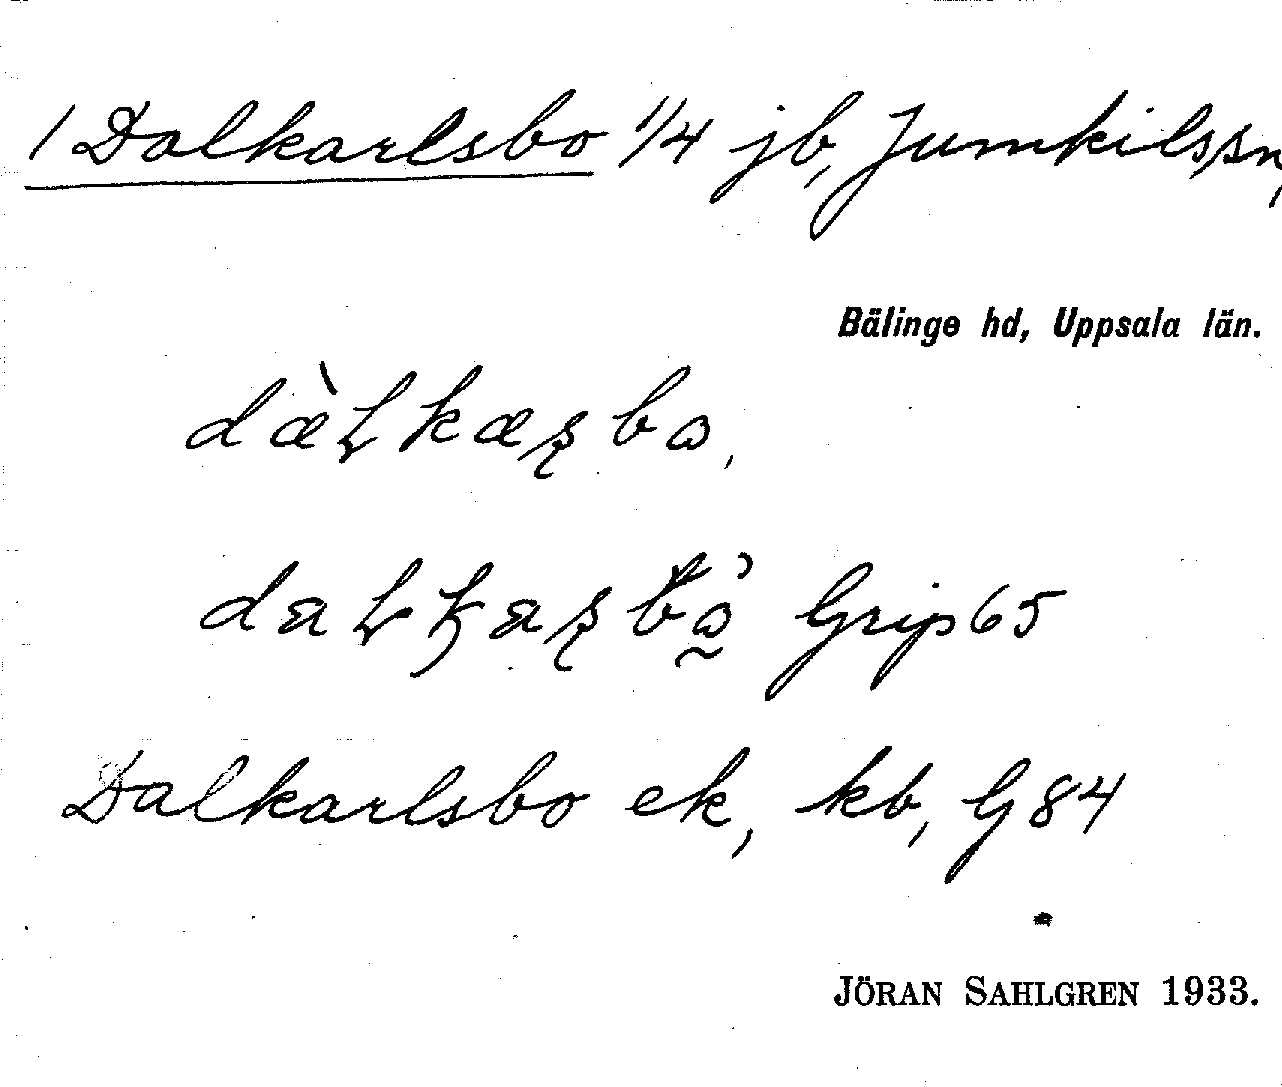 1 Dalkarlsbo 1/4 jb, Jumkils sn,
Bälinge hd, Uppsala län.
Grip 65
Dalkarlsbo ek, kb, G 84
JÖRAN SAHLGREN 1933.